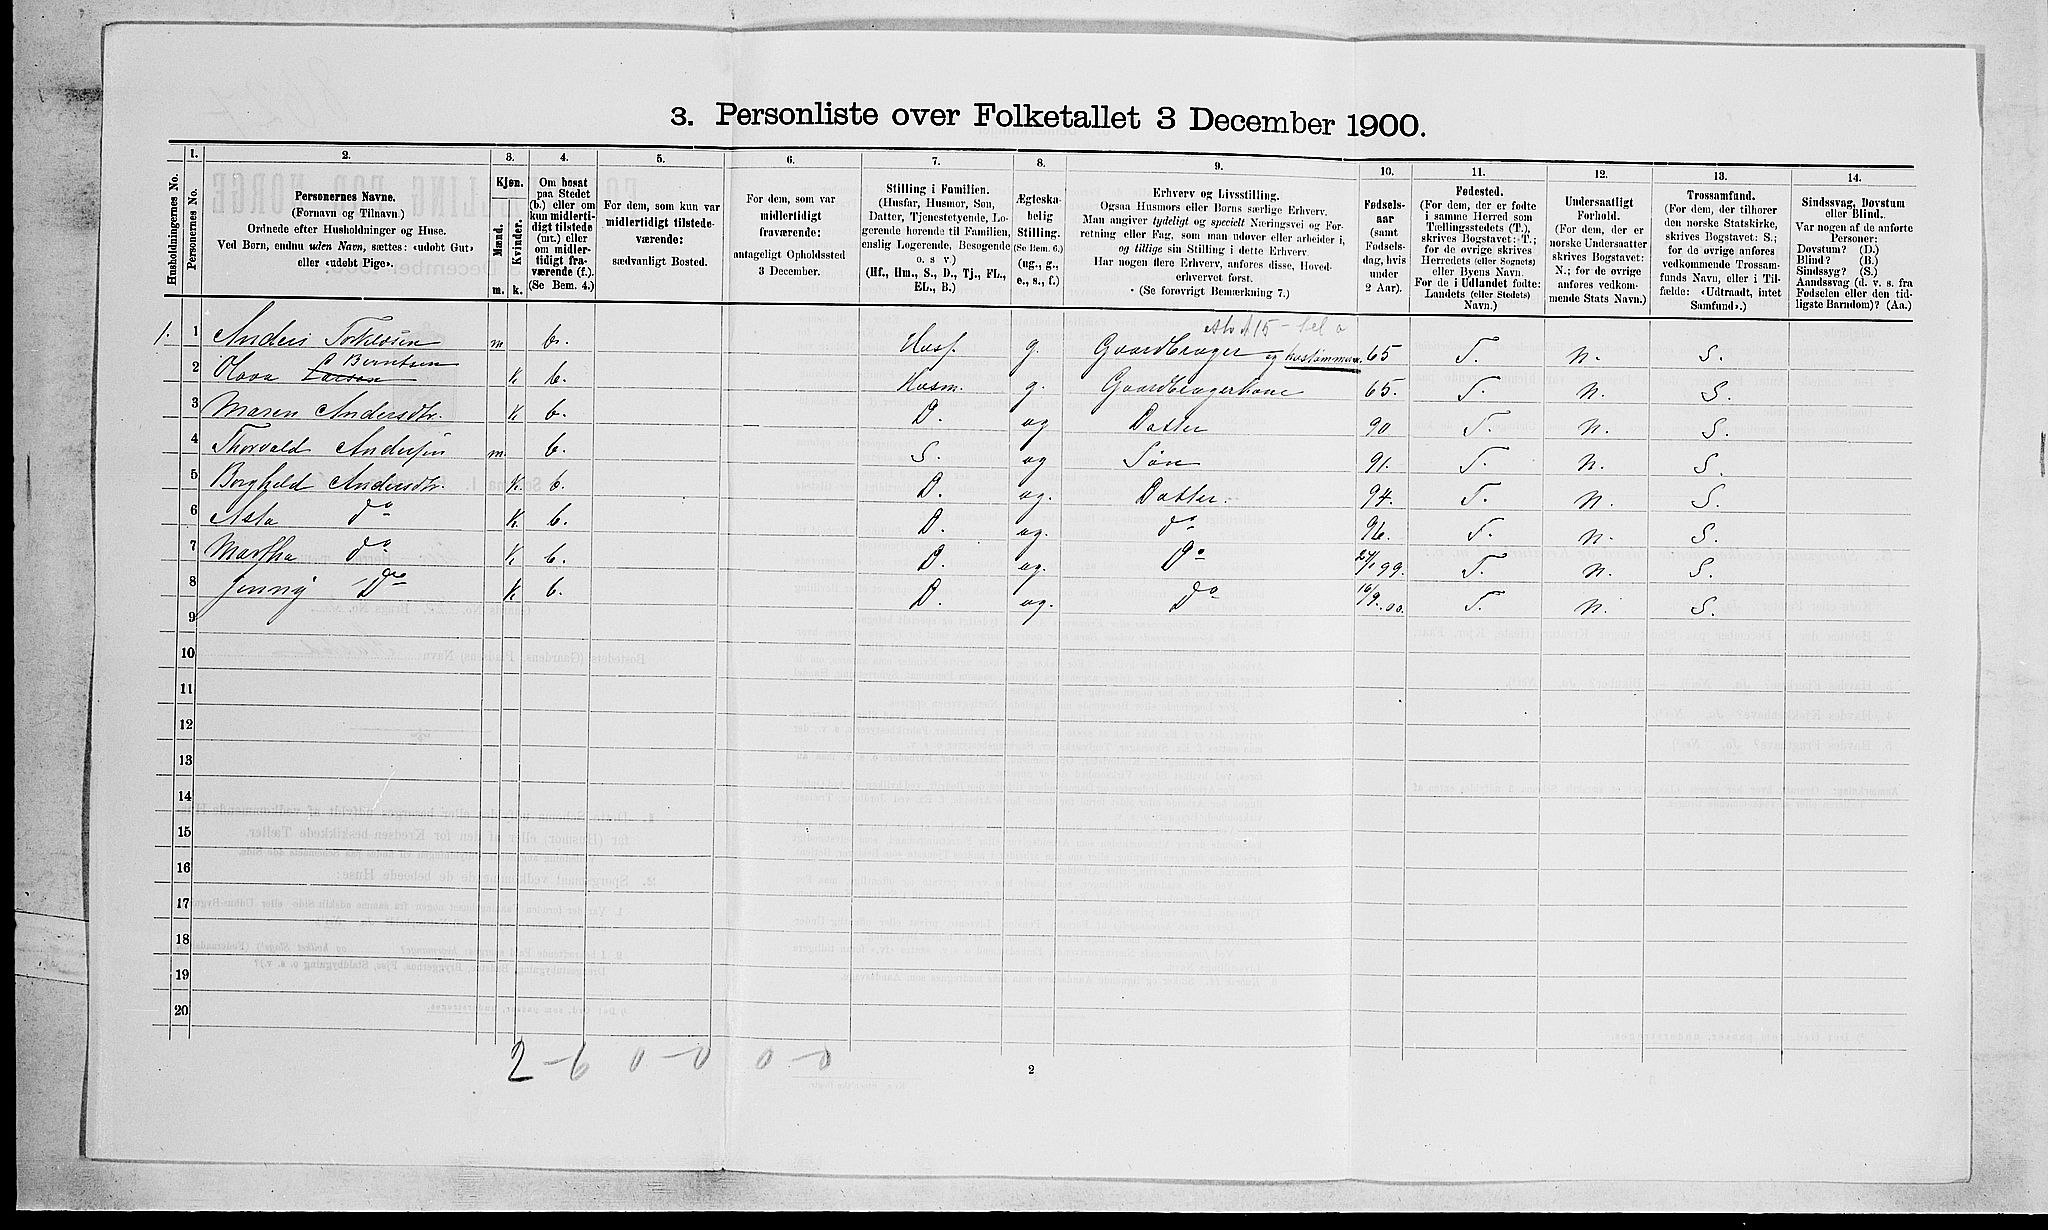 3. Personliste over Folketallet 3 December 1900.
Husholdningernes No.
1. Personernes No.
2. Personernes Navne. (Fornavn og Tilnavn.) Ordnede efter Husholdninger og Huse. Ved Børn, endnu uden Navn, sættes: «udøbt Gut» eller «udøbt Pige».
3. Kjøn. Mænd. m. Kvinder. k.
4. Om bosat paa Stedet (b.) eller om kun midlertidigt tilstede (mt.) eller om midlertidigt fraværende (f.). (Se Bem. 4.)
5. For dem, som kun var midlertidigt tilstedeværende: sædvanligt Bosted.
6. For dem, som var midlertidigt fraværende: antageligt Opholdssted 3 December.
7. Stilling i Familien. (Husfar, Husmor, Søn, Datter, Tjenestetyende, Logerende hørende til Familien, enslig Logerende, Besøgende o. s v.) (Hf., Hm., S., D., Tj., FL., EL., B.)
8. Ægteskabelig Stilling. (Se Bem. 6.) (ug., g., e., s., f.)
9. Erhverv og Livsstilling. Ogsaa Husmors eller Børns særlige Erhverv. Man angiver tydeligt og specielt Næringsvei og Forretning eller Fag, som man udøver eller arbeider i, og tillige sin Stilling i dette Erhverv. Har nogen flere Erhverv, anføres disse, Hovederhvervet først. (Se forøvrigt Bemærkning 7.)
10. Fødselsaar (samt Fødselsdag, hvis under 2 Aar).
11. Fødested. (For dem, der er fødte i samme Herred som Tællingsstedets (T.), skrives Bogstavet: T.; for de øvrige skrives Herredets (eller Sognets) eller Byens Navn. For de i Udlandet fødte: Landets (eller Stedets) Navn.)
12. Undersaatligt Forhold. (For dem, der er norske Undersaatter skrives Bogstavet: N.; for de øvrige anføres vedkommende Stats Navn.)
13. Trossamfund. (For dem, der tilhører den norske Statskirke, skrives Bogstavet: S.; for de øvrige anføres vedkommende Trossamfunds Navn, eller i Tilfælde: «Udtraadt, intet Samfund».)
14. Sindssvag, Døvstum eller Blind. Var nogen af de anførte Personer: Døvstum? (D.) Blind? (B.) Sindssyg? (S.) Aandssvag (d. v. s. fra Fødselen eller den tidligste Barndom)? (Aa.)
1. 1 Anders Torkelsen m b. Husf. g. Gaardbruger og 65 T. N. S.
2 Berntsen K b. Husm. g. Gaardbrugerkone 65. T. N. S.
3 Maren Andersdtr. K b. D. ug Datter 90 T. N. S.
4 Thorvald Andersen m. b. S. ug Søn 91. T. N. S.
5 Borghild Andersdtr. K. b. D. ug. Datter. 94. T. N. S.
6 Asta do K. b. D. ug. do 96. T. N. S.
7 Martha do K b. D. ug. Do 24/1 99. T. N. S.
8 Jenny Do K b. D. ug. Do 16/9.00. T. N. S.
9
10
11
12
13
14
15
16
17
18
19
20
2-6 0-0 0-0
2